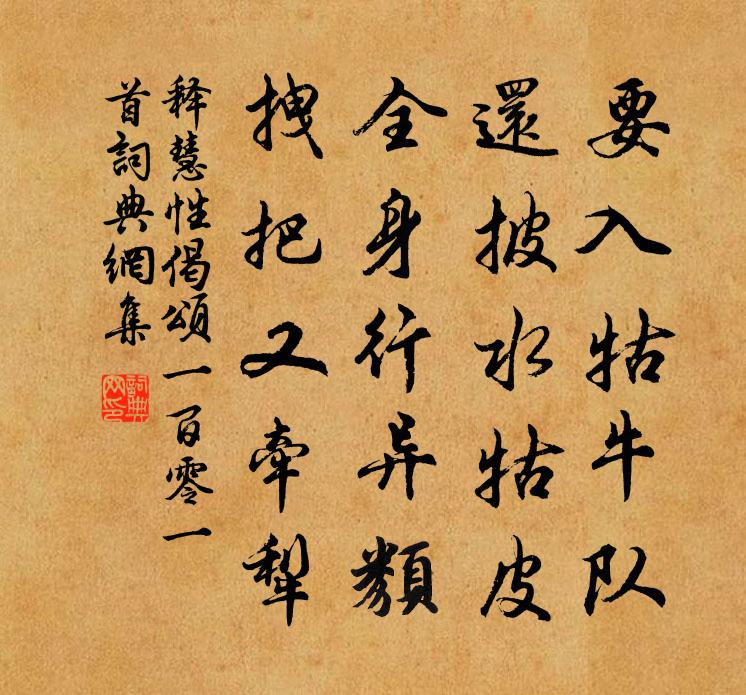 要入牯牛队
還披水牯皮
全身行异類
拽把又牽犁
释慧性偈頌一百零一
首詞典網集
詞典网印